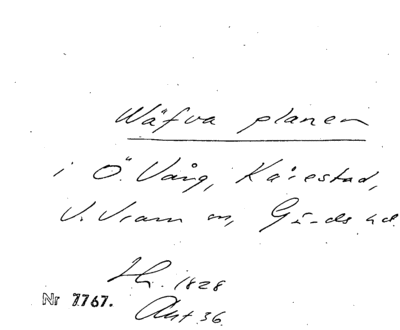 Wäfva planen
i Ö. Vång, Kärestad,
V. Vram sn, Gärds hd.
Hr. 1828
Nr 7767.
Akt 36